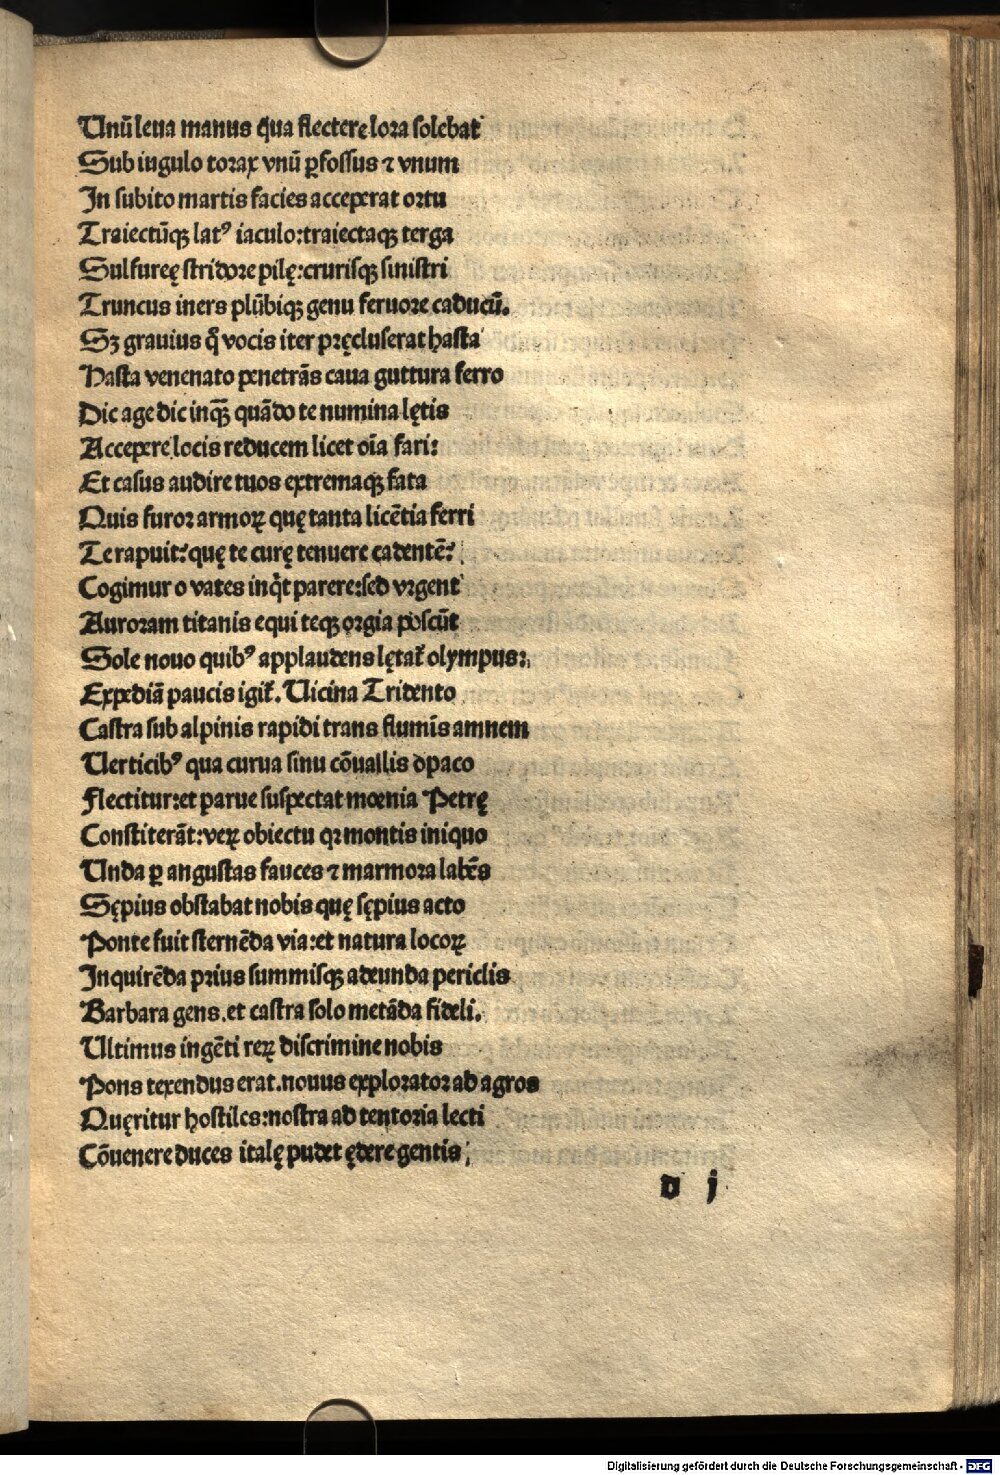 Unū leua manus q̄ua flectere lora solebat
Sub iugulo torax vnū ꝑfossus ⁊ vnum
In subito martis facies acceperat ortu
Traiectūqꝫ latꝰ iaculo:traiectaqꝫ terga
Sulfureę stridore pilę:crurisqꝫ sinistri
Truncus iners plūbiqꝫ genu feruore caducū.
Sꝫ grauius q̄ vocis iter pręcluserat hasta
Hasta venenato penetrās caua guttura ferro
Dic age dic inqꝫ̄ quādo te numina lętis
Accepere locis reducem licet oīa fari:
Et casus audire tuos extremaqꝫ fata
Quis furor armoꝝ quę tanta licētia ferri
Te rapuit:quę te curę tenuere cadentē?
Cogimur o vates inq̄t parere:sed vrgent
Auroram titanis equi teqꝫ orgia poscūt
Sole nouo quibꝰ applaudens lętat̄ olympus:
Expediā paucis igit̄. Uicina Tridento
Castra sub alpinis rapidi trans flumīs amnem
Uerticibꝰ qua curua sinu cōuallis opaco
Flectitur:et parue suspectat mœnia Petrę
Constiterāt:veꝝ obiectu qꝛ montis iniquo
Unda ꝑ angustas fauces ⁊ marmora labēs
Sępius obstabat nobis quę sępius acto
Ponte fuit sternēda via:et natura locoꝝ
Inquirēda prius summisqꝫ adeunda periclis
Barbara gens.et castra solo metāda fideli.
Ultimus ingēti reꝝ discrimine nobis
Pons texendus erat.nouus explorator ad agros
Quęritur hostiles:nostra ad tentoria lecti
Cōuenere duces italę pudet ędere gentis
d j
Digitalisierung gefördert durch die Deutsche Forschungsgemeinschaft - DFG